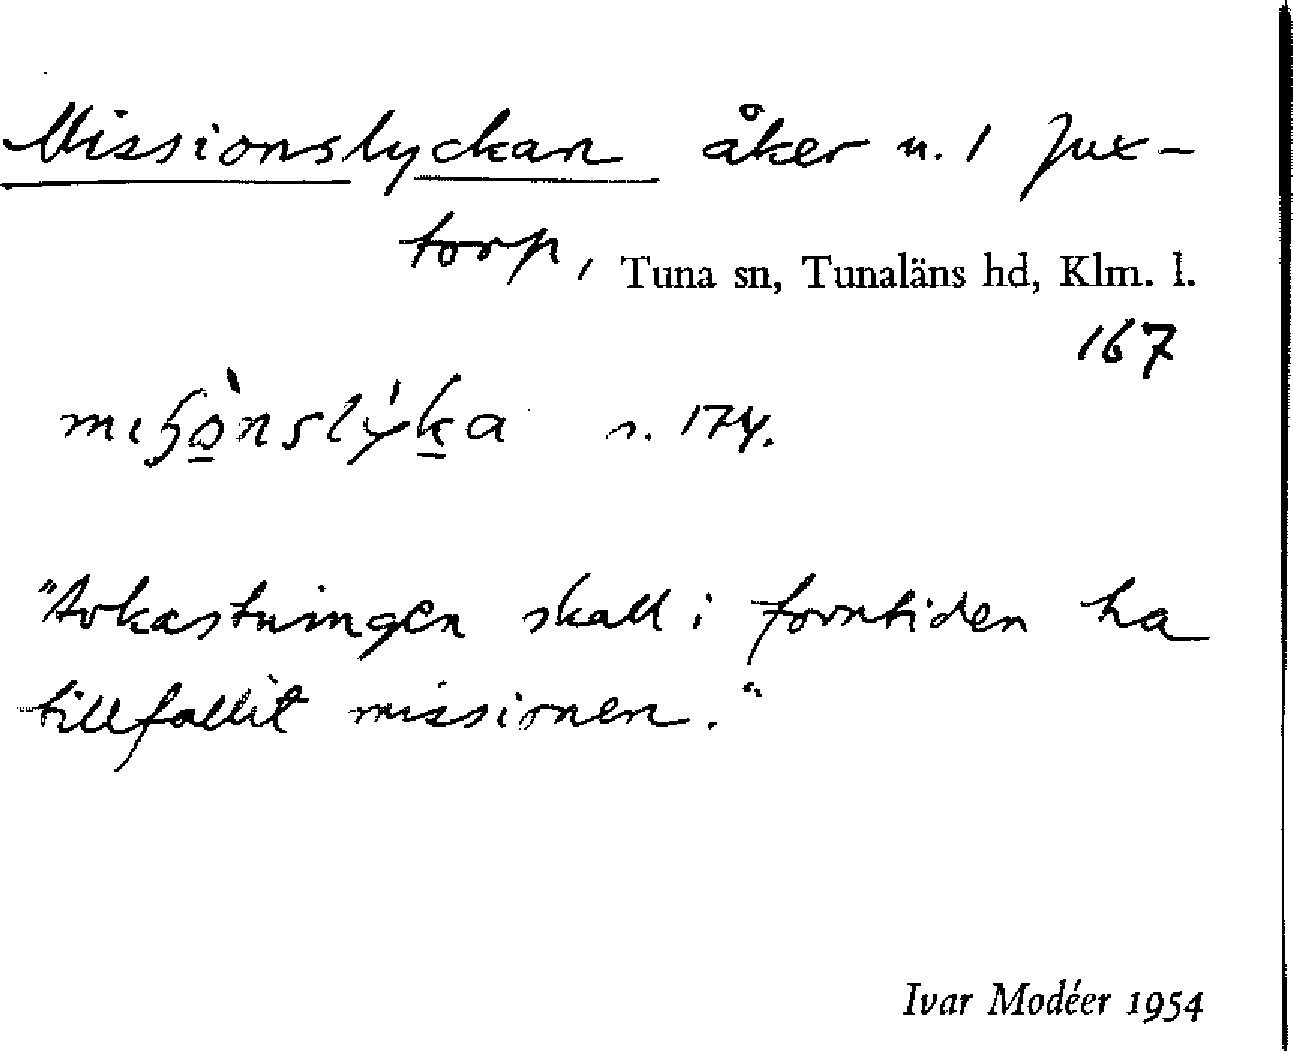 Missionslyckan åker u. 1 Jux-
torp, Tuna sn, Tunaläns hd, Klm. l.
167
s. 174.
"Avkastningen skall i forntiden ha
tillfallit missionen."
Ivar Modéer 1954